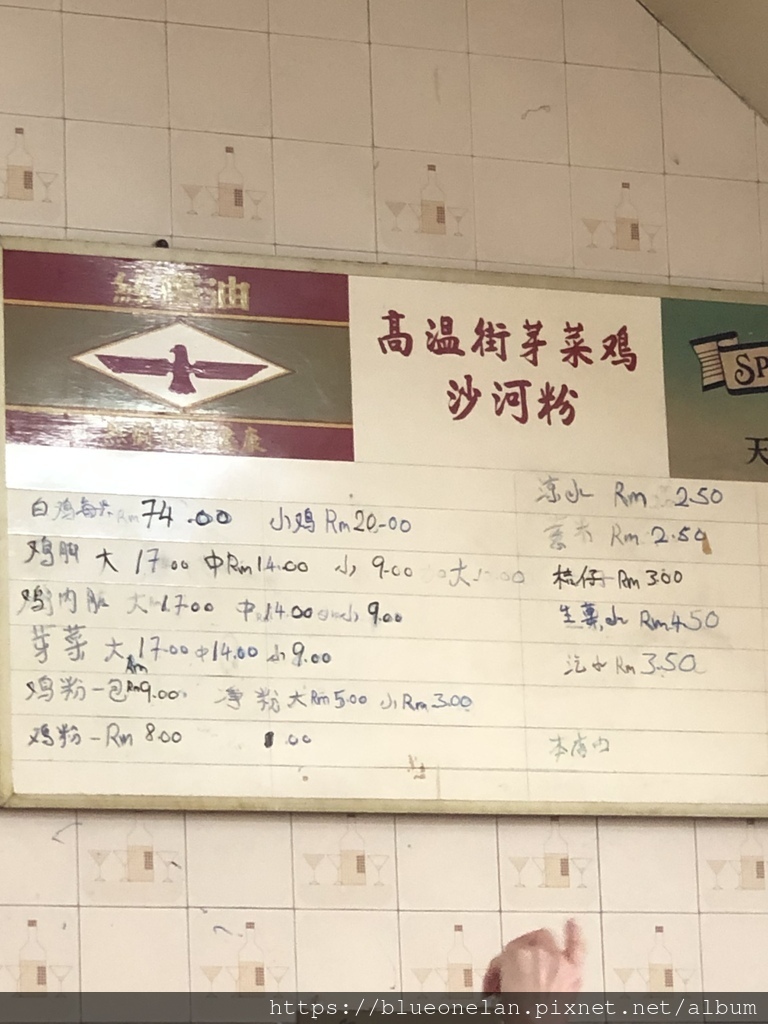 油
高温街芽菜鸡
沙河粉
SP
天
白鸡每只Rm 74.00 小鸡 Rm 20-00
鸡胸 大 17.00 中Rm14.00 小 9.00
鸡内脏 大 17.00 中.14.00 小 9.00
芽菜 大Rm17.00 中14.00 小9.00
鸡粉一包Rm9.00 净粉 大Rm5.00 小Rm3.00
鸡粉 - Rm 8.00 .00
凉水 Rm 2.50
Rm 2.50
桔仔 Rm 300
生薏水 Rm4.50
汽水 Rm 3.50
本店内
https://blueonelan.pixnet.net/album